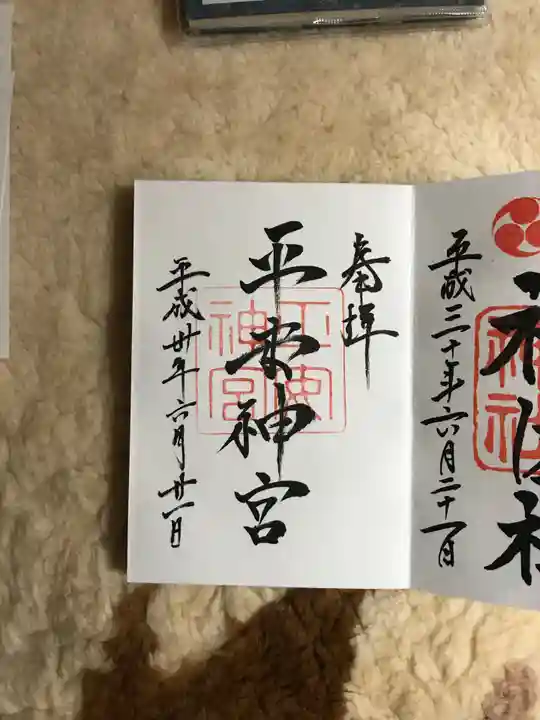 平成三十年六月二十一日
奉拝
平安神宮
平成卅年六月廿一日
神社
平安
神宮